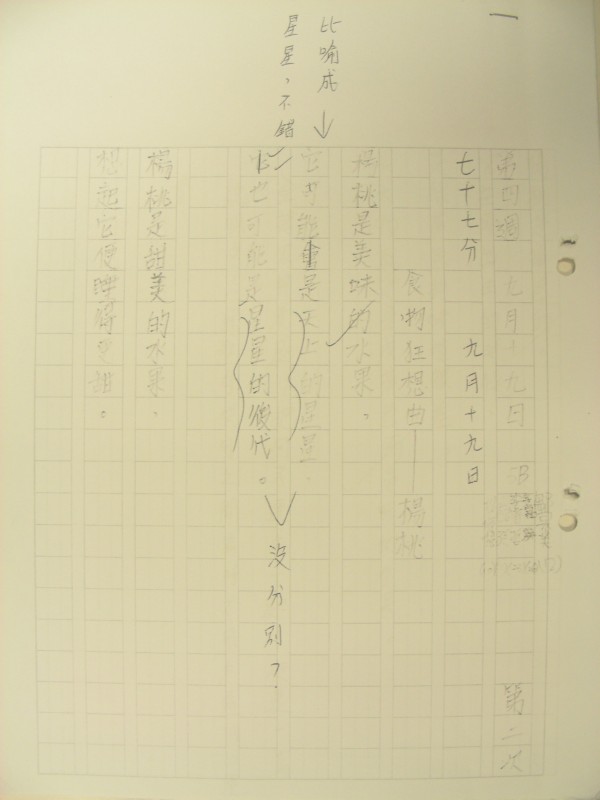 一
第四週 九月十九日 3B
第二次
七十七分 九月十九日
食物狂想曲——楊桃
楊桃是美味的水果，
比喻成
星星，不錯
它可能會是天上的星星，
它也可能是星星的後代。
沒分別？
楊桃是甜美的水果，
想起它便覺得
甜。